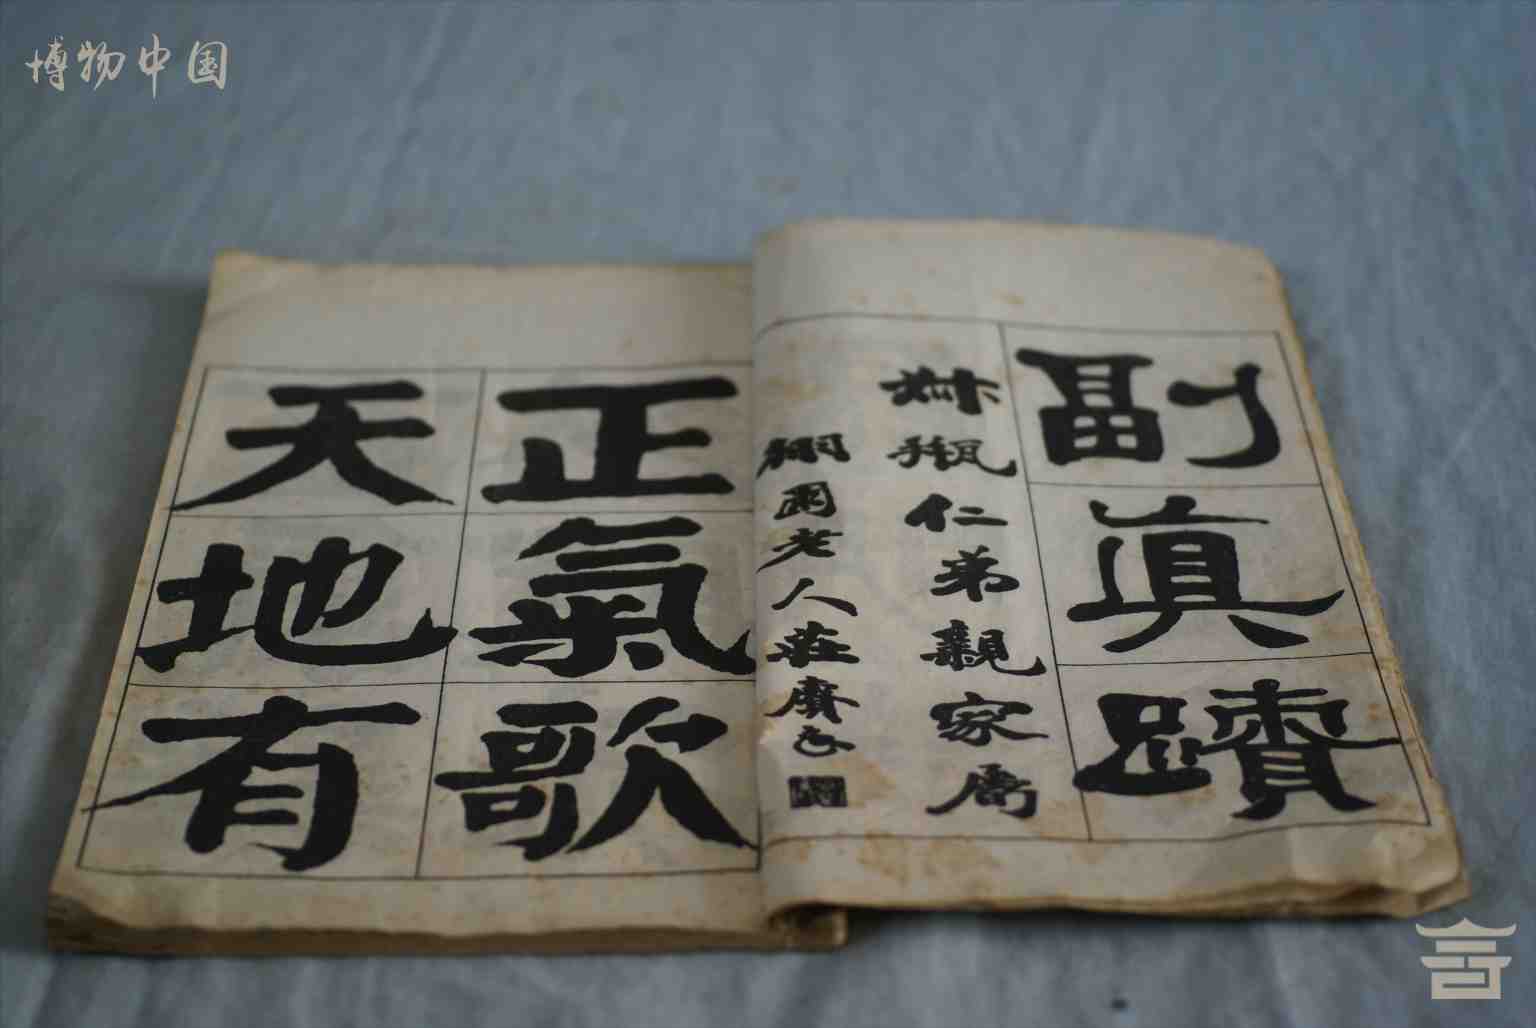 博物中国
副真蹟
仁弟親家屬
園老人莊賡
正氣歌
天地有